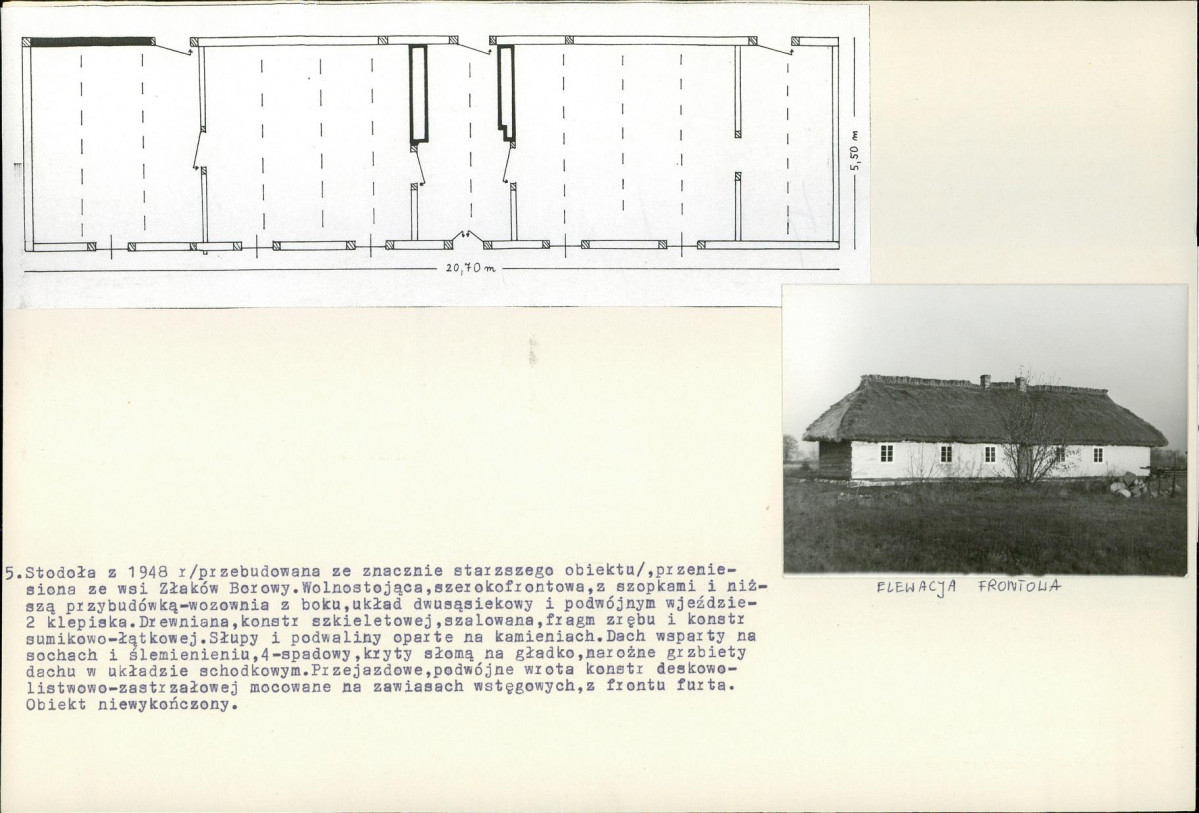 5,50 m
20,70 m
ELEWACJA FRONTOWA
5.Stodoła z 1948 r/przebudowana ze znacznie starzszego obiektu/,przenie-
siona ze wsi Złaków Borowy.Wolnostojąca,szerokofrontowa,z szopkami i niż-
szą przybudówką-wozownia z boku,układ dwusąsiekowy i podwójnym wjeździe-
2 klepiska.Drewniana,konstr szkieletowej,szalowana,fragm zrębu i konstr
sumikowo-łątkowej.Słupy i podwaliny oparte na kamieniach.Dach wsparty na
sochach i ślemienieniu,4-spadowy,kryty słomą na gładko,narożne grzbiety
dachu w układzie schodkowym.Przejazdowe,podwójne wrota konstr deskowo-
listwowo-zastrzałowej mocowane na zawiasach wstęgowych,z frontu furta.
Obiekt niewykończony.